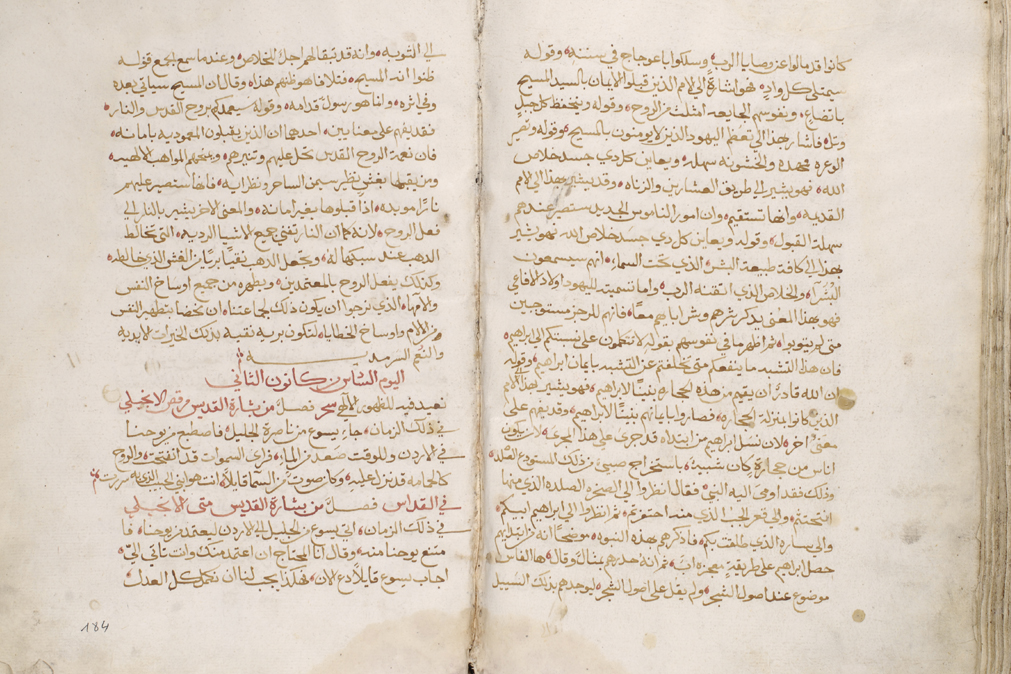 كانوا قد مالوا عن وصايا الرب وسلكوا باعوجاج في سننه وقوله
سيمتلي كل وادٍ فهو اشارةً الى الامم الذين قبلوا الايمان بالسيد المسيح
باتضاع ونفوسهم الجايعه امتلت من الروح وقوله وينخفظ كل جبلٍ
وتله فاشار بهذا الي تعظم اليهود الذين لا يومنون بالمسيح وقوله وتصير
الوعره ممهده والخشونه سهله ويعاين كل ذي جسد خلاص
الله فهو يشير الى طريق العشارين والزناه وقد يشير بهذا الى الامم
القديمه وانها تستقيم وان امور الناموس الجديد ستصير عندهم
سهلة القبول وقوله ويعاين كل ذي جسد خلاص الله فهو يشير
بهذا الى كافة طبيعة البشر الذي تحت السماء انهم سيسمعون
البُشرا والخلاص الذي اتقنه الرب واما تسميته لليهود اولاد الافاعي
فهو بهذا المعنى يذكر شرهم وشر اباهم معاً فانهم للرجز مستوجبين
متى لم يتوبوا ثم اظهر ما في نفوسهم بقوله لا تتكلمون على نسبتكم الى ابراهيم
فان هذا التشبه ما ينفعكم متى تخلفتم عن التشبه بايمان ابراهيم وقوله
ان الله قادرٌ ان يقيم من هذه الحجاره بنيناً لابراهيم فهو يشير بهذا الى الامم
الذين كانوا بمنزلة الحجاره فصاروا بايمانهم بنيناً لابراهيم وقد يفهم على
معنى اخر لان نسل ابراهيم من ابتداه قد جرى على هذا المجرى لان يكون
اناس من حجارةٍ كان شبيهه باستخراج صبي من ذلك المستودع الصلد
وذلك فقد اومى اليه النبي فقال انظروا الى الصخره الصلده الذي منها
انتحتتم والى قعر الجب الذي منه احتفرتم ثم انظروا الى ابراهيم ابيكم
والى ساره الذي طلقت بكم فاذكرهم بهذه النبوه موضحاً انه
حصل ابراهيم على طريقةٍ معجزه اب ثم انه هددهم بمثال وقال ها الفاس
موضوع عند اصول الشجر ولم يقل على اصول الشجر ليوجدهم بذلك السبيل
الى التوبه وانه قد تبقا لهم اجل الخلاص وعندما سمع الجمع قوله
ظنوا انه المسيح فتلافا هو ظنهم هذا وقال ان المسيح سياتي بعده
وفي اثره وانا هو رسول قدامه وقوله سيعمدكم بروح القدس والنار
فقد يفهم على معنايين احدهما ان الذين يقبلون المعمودية بامانه
فان نعمة الروح القدس تحل عليهم وتنيرهم وتمنحهم المواهب الالهيه
ومن يقبلها بغشٍ نظير سيمن الساحر ونظرايه فانها ستصير عليهم
ناراً موبده اذا قبلوها بغير امانه والمعنى الاخر يشير بالنار الى
فعل الروح لانه كما ان النار تفني جميع الاشيا الردية التي تخالط
الذهب عند سبكها له وتجعل الذهب نقياً برياً من الغش الذي خالطه
وكذلك يفعل الروح بالمعتمدين ويطهره من جميع اوساخ النفس
والامها الذي نرجوا ان يكون ذلك لجماعتنا ان يخصنا بتطهير النفس
من الالام واوساخ الخطايا لتكون بريه نقيه بذلك الخيرات الابديه
والنعم السرمديــــــه
اليوم السادس من كانون الثاني
نعيد فيه للظهور الالهي سحر فصل من بشارة القديس مرقص الانجيلي
في ذلك الزمان جا يسوع من ناصرة الجليل فاصطبغ من يوحنا
في الاردن وللوقت صعد من الما فراى السموات قد انفتحت والروح
كالحامه قد نزل عليه وكان صوت من السما قايلاً انت هو ابني الحبيب الذي به سررت
في القداس فصل من بشارة القديس متى الانجيلي
في ذلك الزمان اتى يسوع من الجليل الى الاردن ليعتمد من يوحنا فا
متنع يوحنا منه وقال انا المحتاج ان اعتمد منك وانت تاتي الي
اجاب يسوع قايلاً دع الان فهكذا يجب لنا ان نكمل كل العدل
184